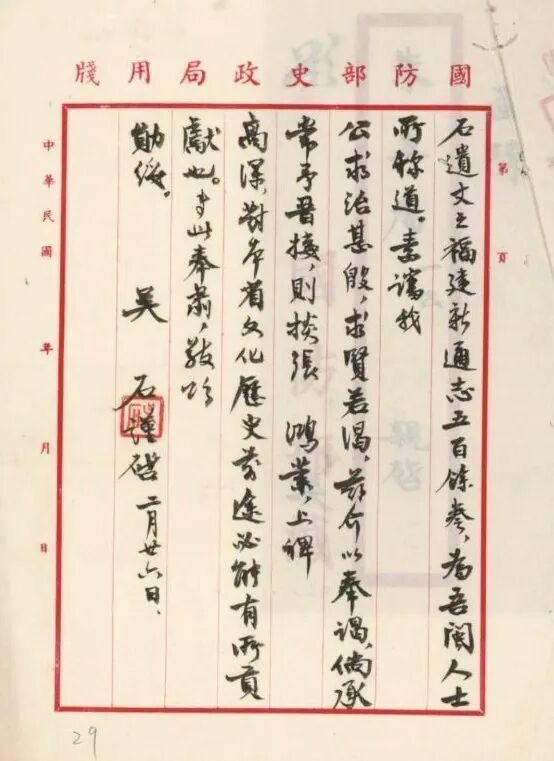 國防部史政局用牋
第 頁
石遺文之福建新通志五百餘卷，為吾閩人士
所称道。素諗我
公求治甚殷，求賢若渴，茲介以奉謁，倘承
常予晉接，則掞張 鴻業，上裨
高深，對本省文化歷史前途必能有所貢
獻也。专此奉肅，敬頌
勛綏。
吳 石謹啓 二月廿六日、
中華民國 年 月 日
29